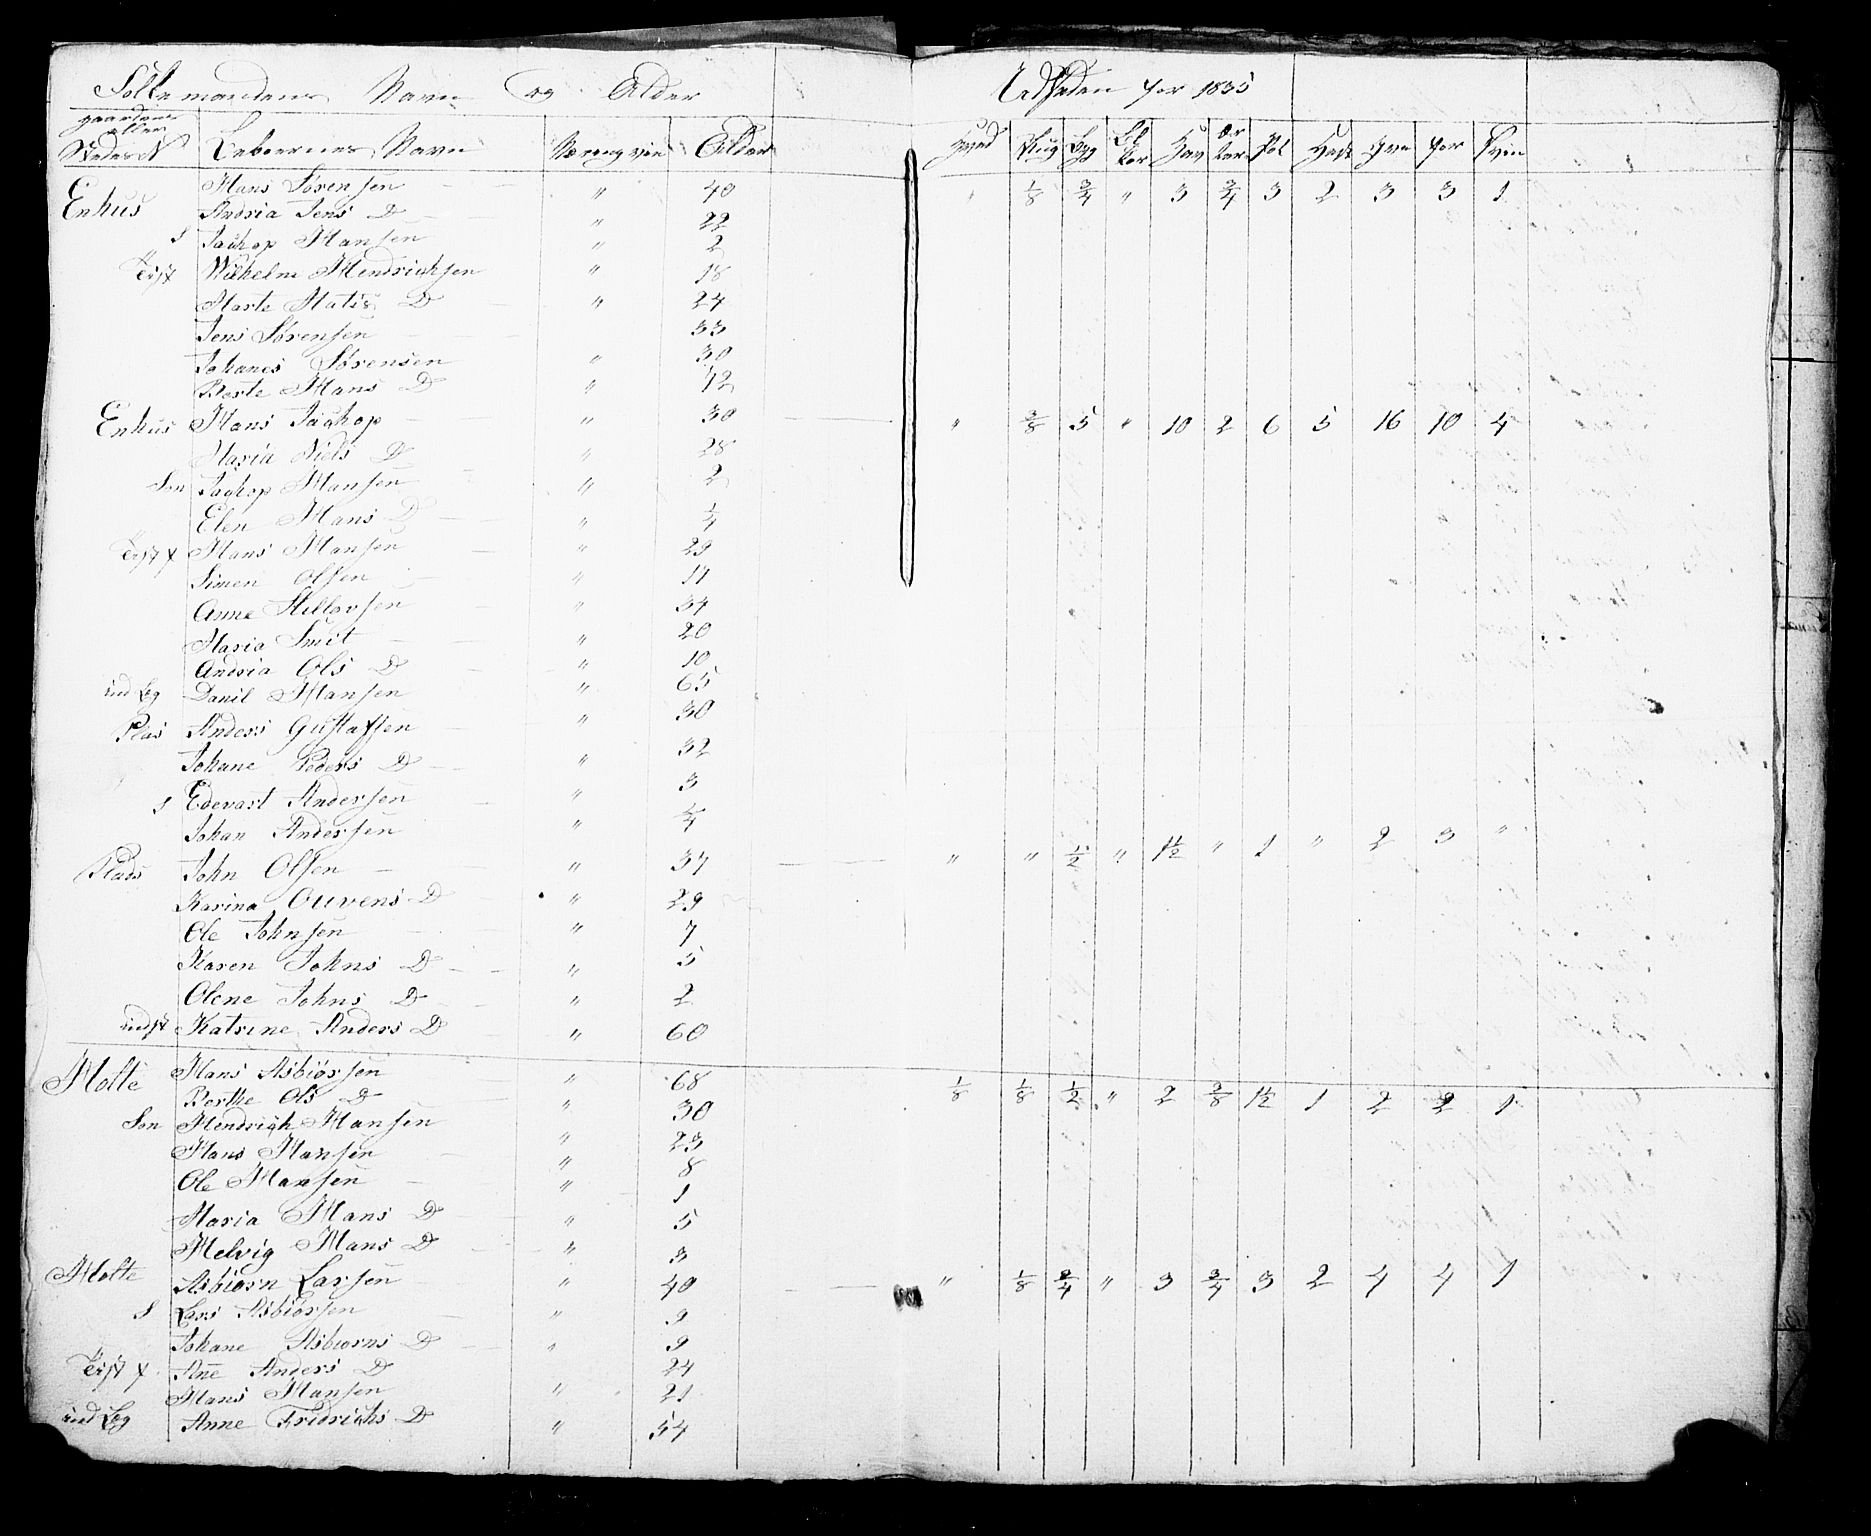 Folkemandens Navn og Alder Udseden for 1835
gaardens eller Stedes N Beboernes Navn Næringsvei Alder Hved Rug Byg Bl kor Hav Er ter Pot Hest Qve For Svin
Enhus Hans Sørensen " 40 " 1/8 3/4 " 3 3/4 3 2 3 3 1
Andria Jens D " 22
S Jachop Hansen " 2
Tejst Wilhelm Hendrichsen " 18
Marte Matis D " 24
Jens Sørensen 33
Johanes Sørensen " 30
Berte Hans D " 72
Enhus Hans Jachop " 30 " 3/8 5 " 10 2 6 5 16 10 4
Maria Niels D " 28
Søn Jachop Hansen " 2
Elen Hans D " 1/4
Tejst f Hans Hansen " 29
Simen Olsen " 17
Anne Hellevsen " 34
Maria Smit " 20
Andria Ols D " 10
ind Leg Danil Hansen " 65
Plas Anders Gustafsen " 30
Johane Peders D " 32
S Edevart Andersen " 3
Johan Andersen " 1/4
Plads John Olsen " 37 " " 1/2 " 1 1/2 " 1 " 2 3 "
Karina Ouvens D " 29
Ole Johnsen " 7
Karen Johns D " 5
Olene Johns D " 2
indst Katrine Anders D " 60
Holte Hans Asbiørsen " 68 1/8 1/8 1/2 " 2 3/8 1 1/2 1 2 2 1
Berthe Ols D " 30
Søn Hendrich Hansen " 23
Hans Hansen " 8
Ole Hansen " 1
Maria Hans D " 5
Helvig Hans D " 3
Holte Asbiørn Larsen " 40 " 1/8 3/4 " 3 3/4 3 2 4 4 1
S Lars Asbiørsen " 9
Johane Asbiørns D " 9
Tejst f Ane Anders D 24
Hans Hansen " 21
ind Leg Anne Fridrichs D " 54